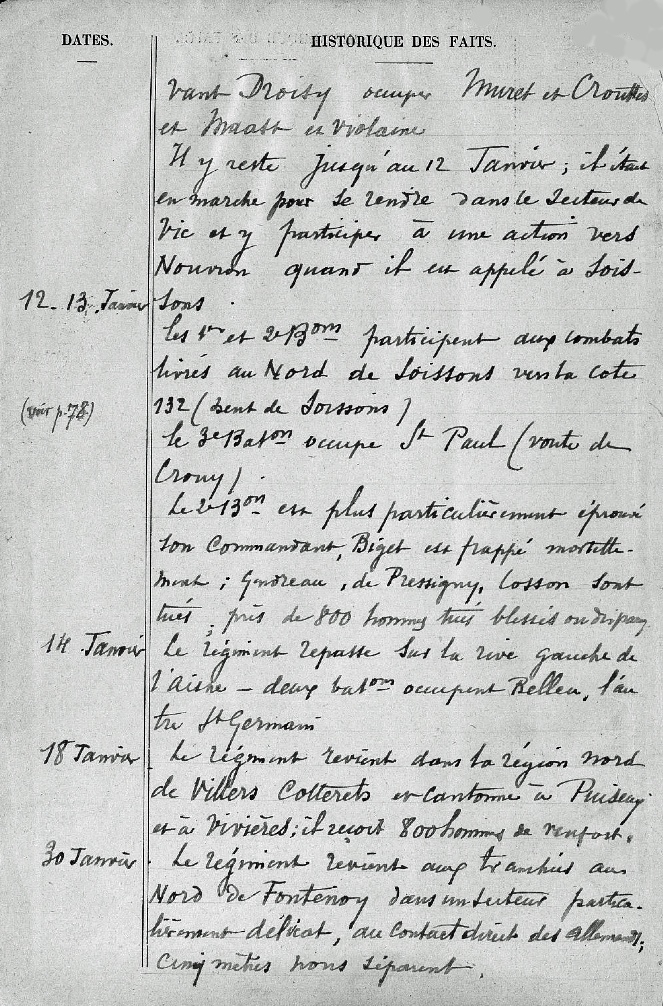 DATES. HISTORIQUE DES FAITS.
vant Droisy occuper Muret et Crouttes
et Maast et Violaine
Il y reste jusqu'au 12 Janvier ; il était
en marche pour se rendre dans le Secteur de
Vic et y participer à une action vers
Nouvron quand il est appelé à Sois-
12-13 Janvier sons.
Les 1er et 2e Bons participent aux combats
livrés au Nord de Soissons vers la cote
(voir p. 78) 132 (dent de Soissons)
Le 3e Baton occupe St Paul (route de
Crouy).
Le 2e Bon est plus particulièrement éprouvé
son Commandant, Biget est frappé mortelle-
ment ; Gendreau, de Pressigny, Cosson sont
tués ; près de 800 hommes tués blessés ou disparus
14 Janvier Le régiment repasse sur la rive gauche de
l'Aisne – deux batons occupent Belleu, l'au
tre St Germain
18 Janvier Le régiment revient dans la région nord
de Villers Cotterets et cantonne à Puiseux
et à Vivières ; il reçoit 800 hommes de renfort.
30 Janvier Le régiment revient aux tranchées au
Nord de Fontenoy dans un secteur particu-
lièrement délicat, au contact direct des allemands ;
Cinq mètres nous séparent.